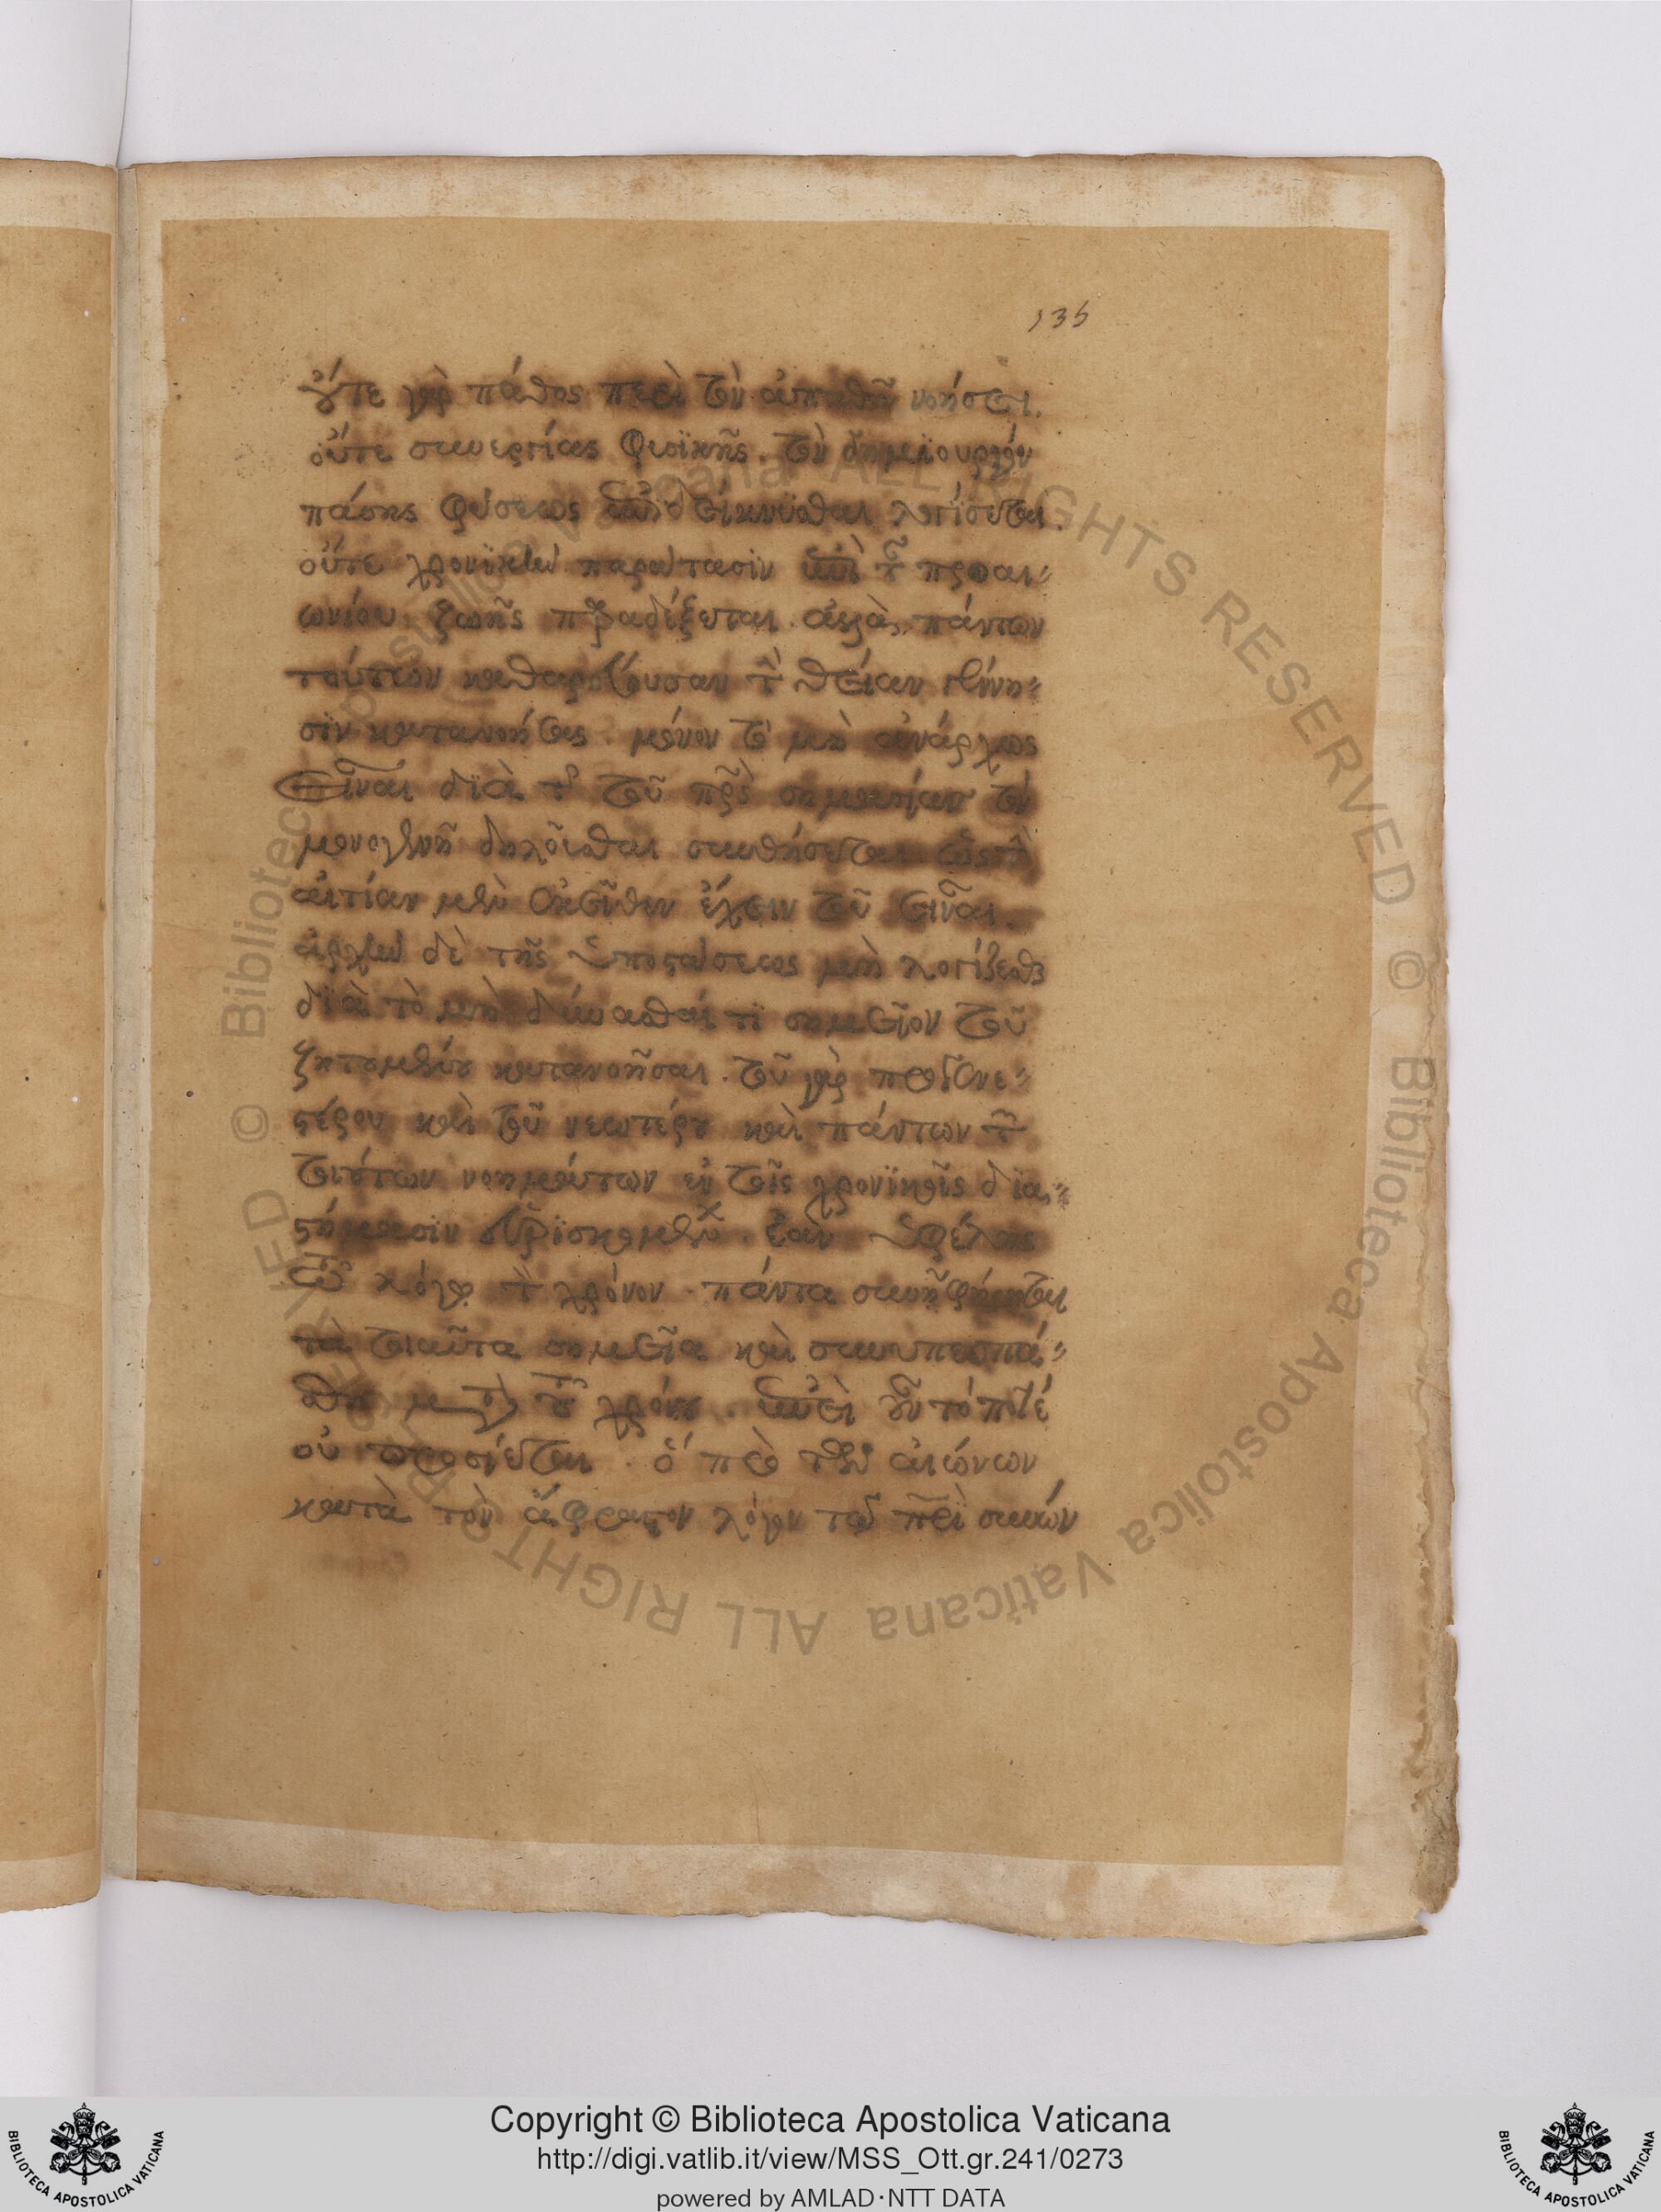 135
οὔτε γὰρ πάθος περὶ τὸν ἀπαθῆ νοήσει.
οὔτε συνεργίας φυσϊκῆς. τὸν δημϊουργὸν
πάσης φύσεως ἐπιδεῖκνύσθαι λογίσεται.
οὔτε χρονϊκὴν παράτασϊν ἐπὶ τῆς προαι
ωνίου ζωῆς παραδέξεται. ἀλλὰ πάντων
τούτων καθαρεύουσαν τὴν θείαν γέννη
σϊν κατανοήσας. μόνον τὸ μὴ ἀνάρχως
εἶναι δϊὰ τῆς τοῦ πατρὸς σημασίας τὸν
μονογενῆ δηλοῦσθαι συνθήσεται ὡς τὴν
αἰτίαν μὲν ἐκεῖθεν ἔχειν τοῦ εἶναι.
ἀρχὴν δὲ τῆς ὑποστάσεως μὴ λογίζεσθαι
δϊὰ τὸ μὴ δύνασθαί τϊ σημεῖον τοῦ
ζητουμένου κατανοῆσαι. τοῦ γὰρ πρε
στέρου καὶ τοῦ νεωτέρου καὶ πάντων τῶν
τοιούτων νοημάτων ἐν τοῖς χρονϊκοῖς δϊα
στήμασϊν εὑρϊσκομένων. ἐὰν ὑφέλῃς
τῷ λόγῳ τὸν χρόνον. πάντα συνῄρηται
τὰ τοιαῦτα σημεῖα καὶ συνυπεσπά
σθη μετὰ τοῦ χρόνου. ἐπεὶ οὖν τό ποτέ
οὐ προσίεται. ὁ πρὸ τῶν αἰώνων
κατὰ τὸν ἄφραστον λόγον τῷ πατρὶ συνών
Copyright © Biblioteca Apostolica Vaticana
http://digi.vatlib.it/view/MSS_Ott.gr.241/0273
powered by AMLAD·NTT DATA
BIBLIOTECA APOSTOLICA VATICANA
BIBLIOTECA APOSTOLICA VATICANA
© Biblioteca Apostolica Vaticana ALL RIGHTS RESERVED © Biblioteca Apostolica Vaticana ALL RIGHTS RESERVED